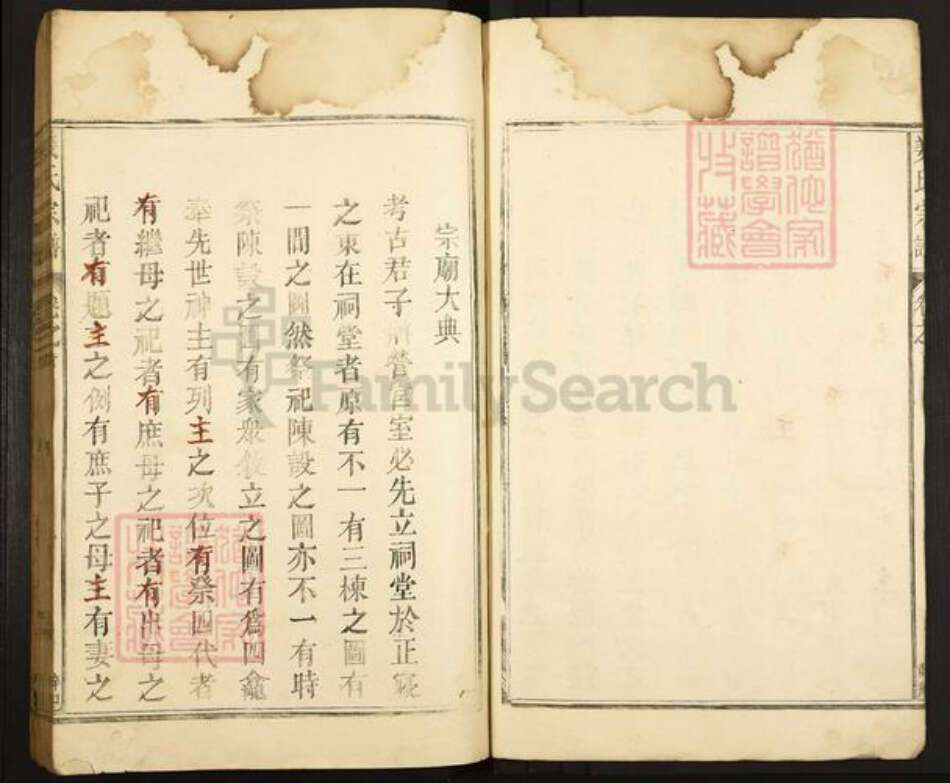 宗廟大典
考古君子將營宮室必先立祠堂於正寢
之東在祠堂者原有不一有三棟之圖有
一間之圖然祭祀陳設之圖亦不一有時
祭陳設之圖有家眾敘立之圖有爲四龕
奉先世神主有列主之次位有祭四代者
有繼母之祀者有庶母之祀者有出母之
祀者有題主之例有庶子之母主有妻之
氏宗譜
FamilySearch
譜學會
收藏